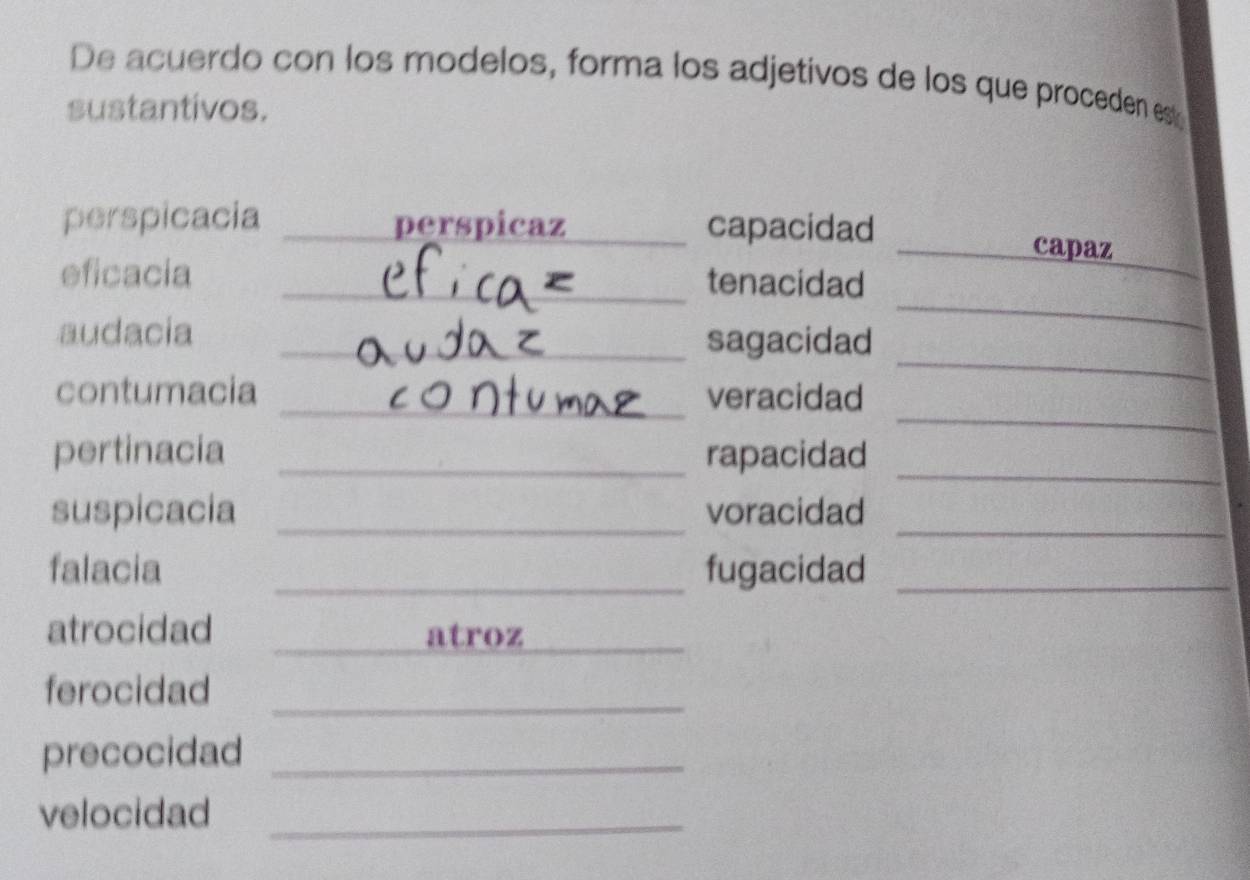 De acuerdo con los modelos, forma los adjetivos de los que proceden
sustantivos.
perspicacia perspicaz
eficacia eficaz
audacia audaz
contumacia contumaz
pertinacia
suspicacia
falacia
atrocidad atroz
ferocidad
precocidad
velocidad
capacidad capaz
tenacidad
sagacidad
veracidad
rapacidad
voracidad
fugacidad